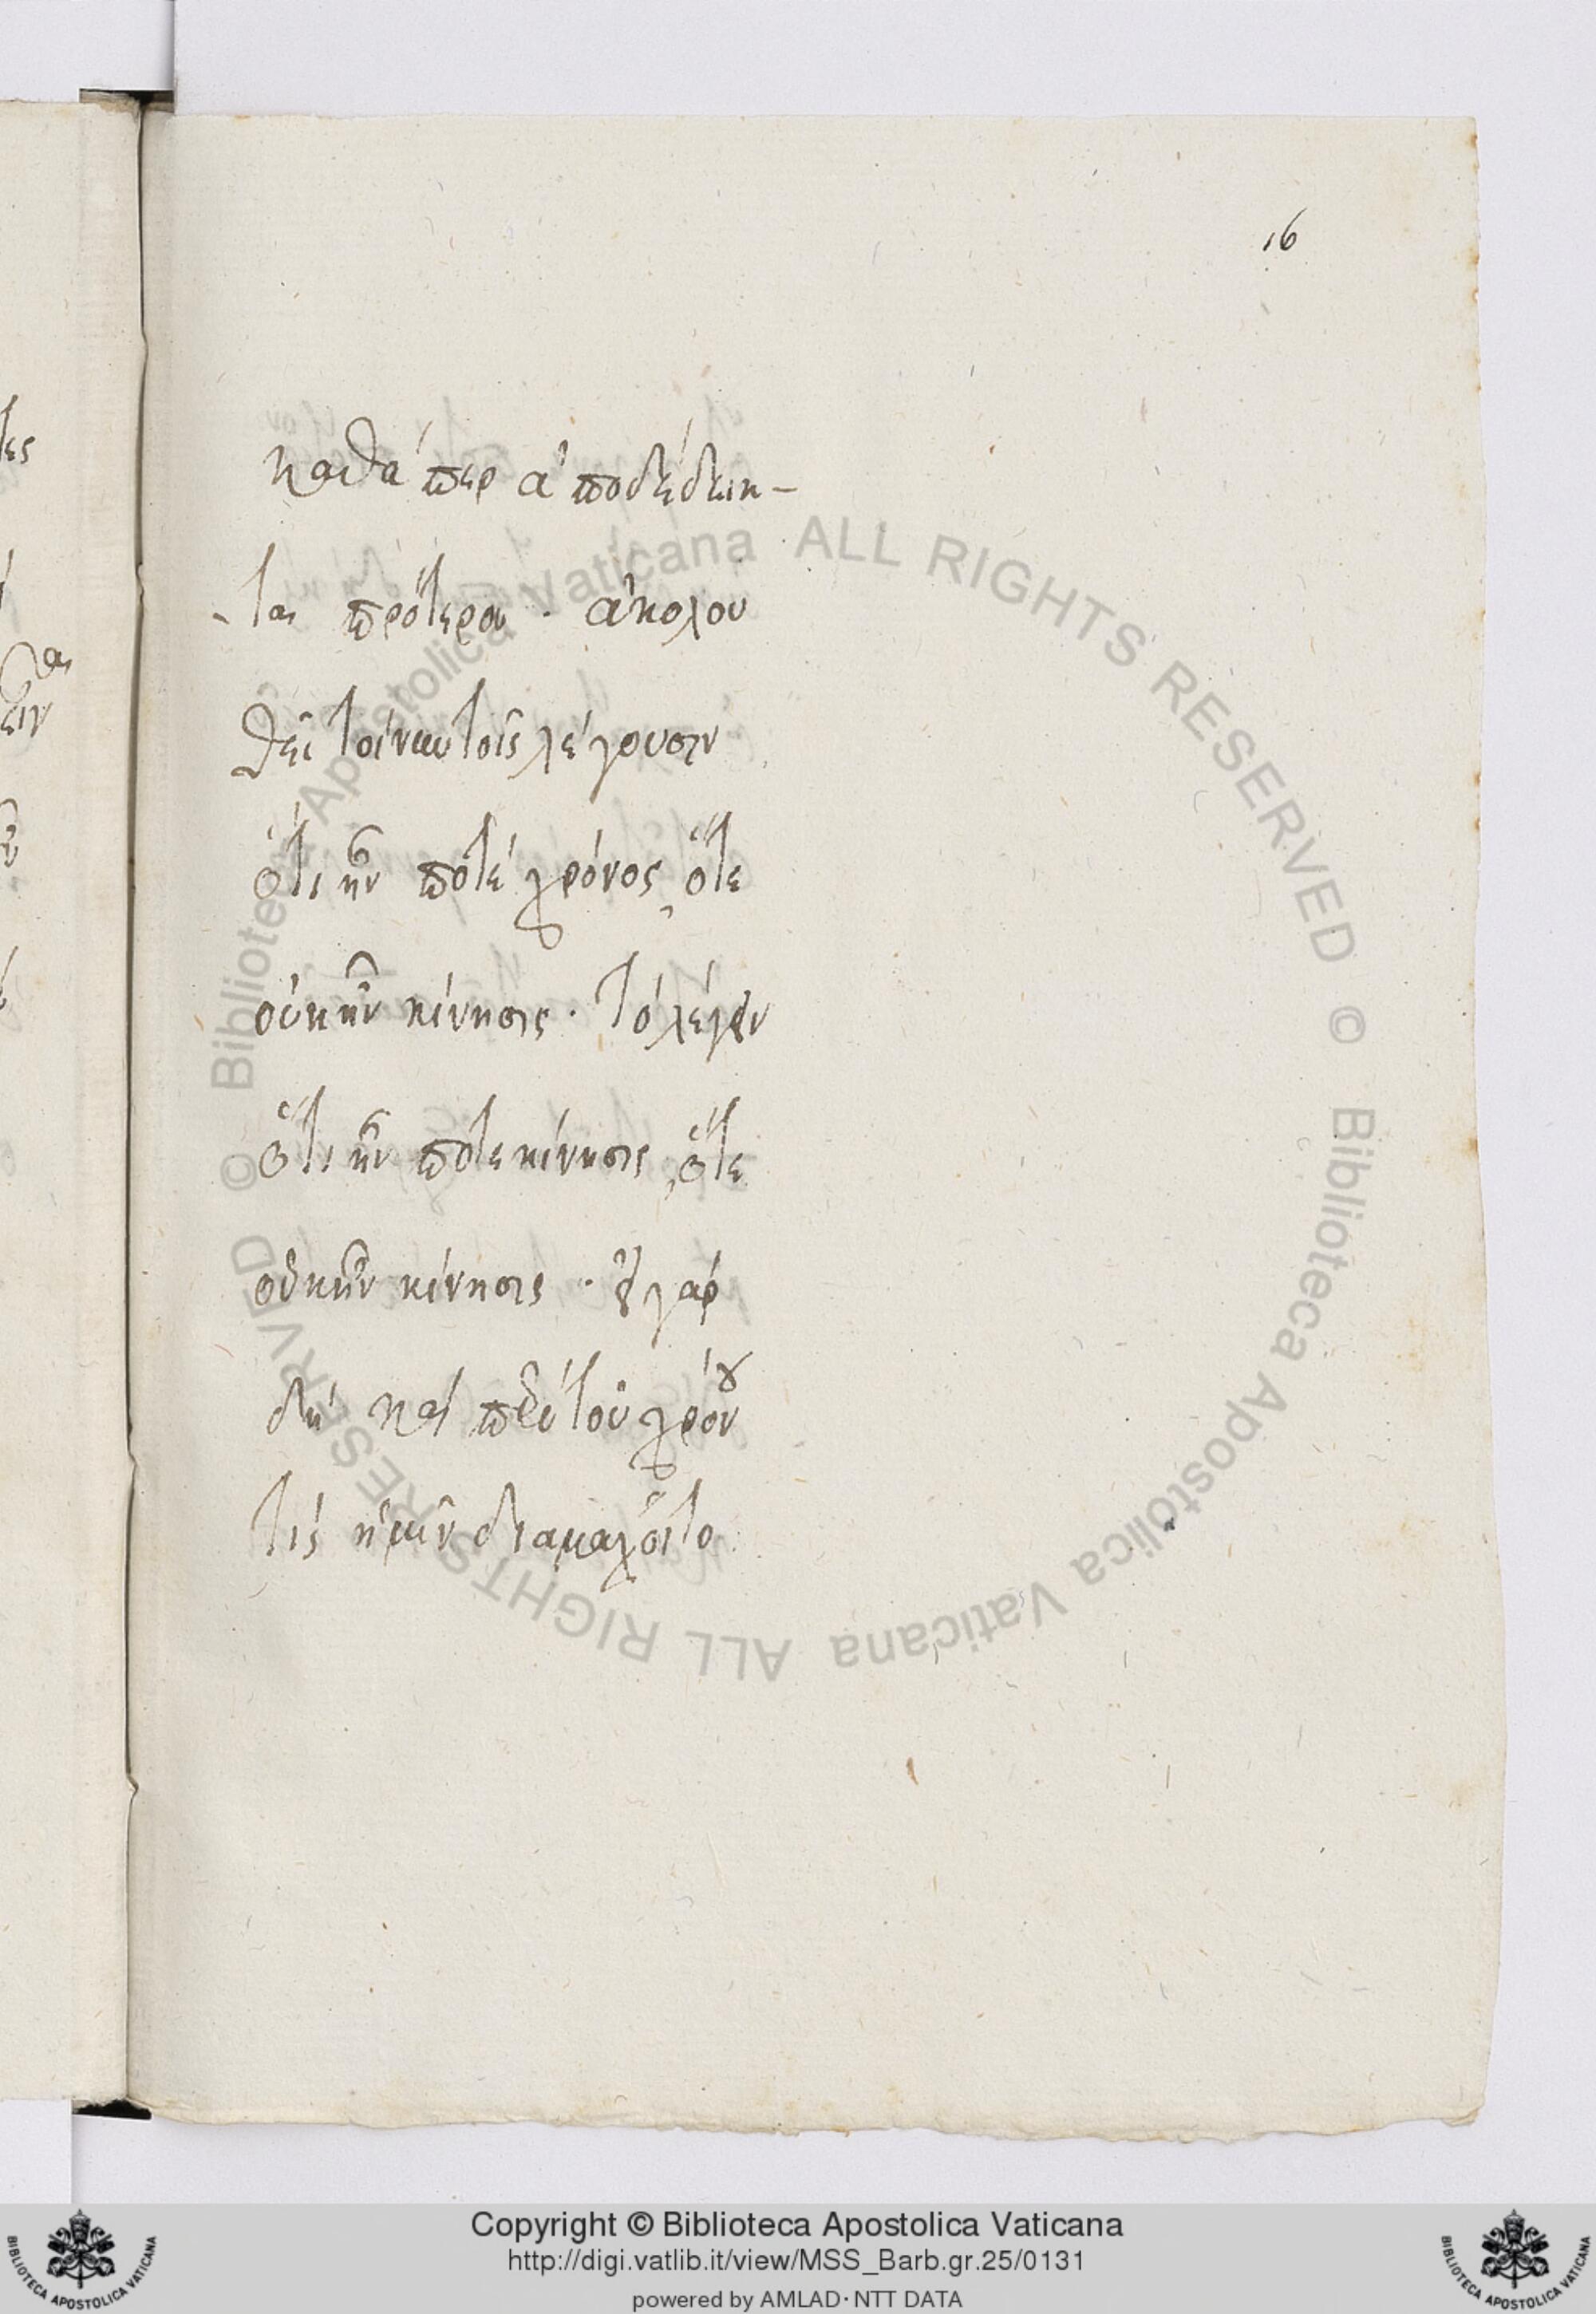 16
καθάπερ ἀποδέδεικ-
-ται πρότερα. ἀκολου
θεῖ τοίνυν τοῖς λέγουσιν
ὅτι ἦν ποτέ χρόνος, ὅτε
οὐκ ἦν κίνησις. τὸ λέγειν
ὅτι ἦν ποτε κίνησις, ὅτε
οὐκ ἦν κίνησις. εἰ γάρ
δή καὶ περὶ τοῦ χρόνου
τίς ἡμῖν διαμαχοῖτο
Copyright © Biblioteca Apostolica Vaticana
http://digi.vatlib.it/view/MSS_Barb.gr.25/0131
powered by AMLAD·NTT DATA
© Biblioteca Apostolica Vaticana ALL RIGHTS RESERVED © Biblioteca Apostolica Vaticana ALL RIGHTS RESERVED
BIBLIOTECA APOSTOLICA VATICANA
BIBLIOTECA APOSTOLICA VATICANA